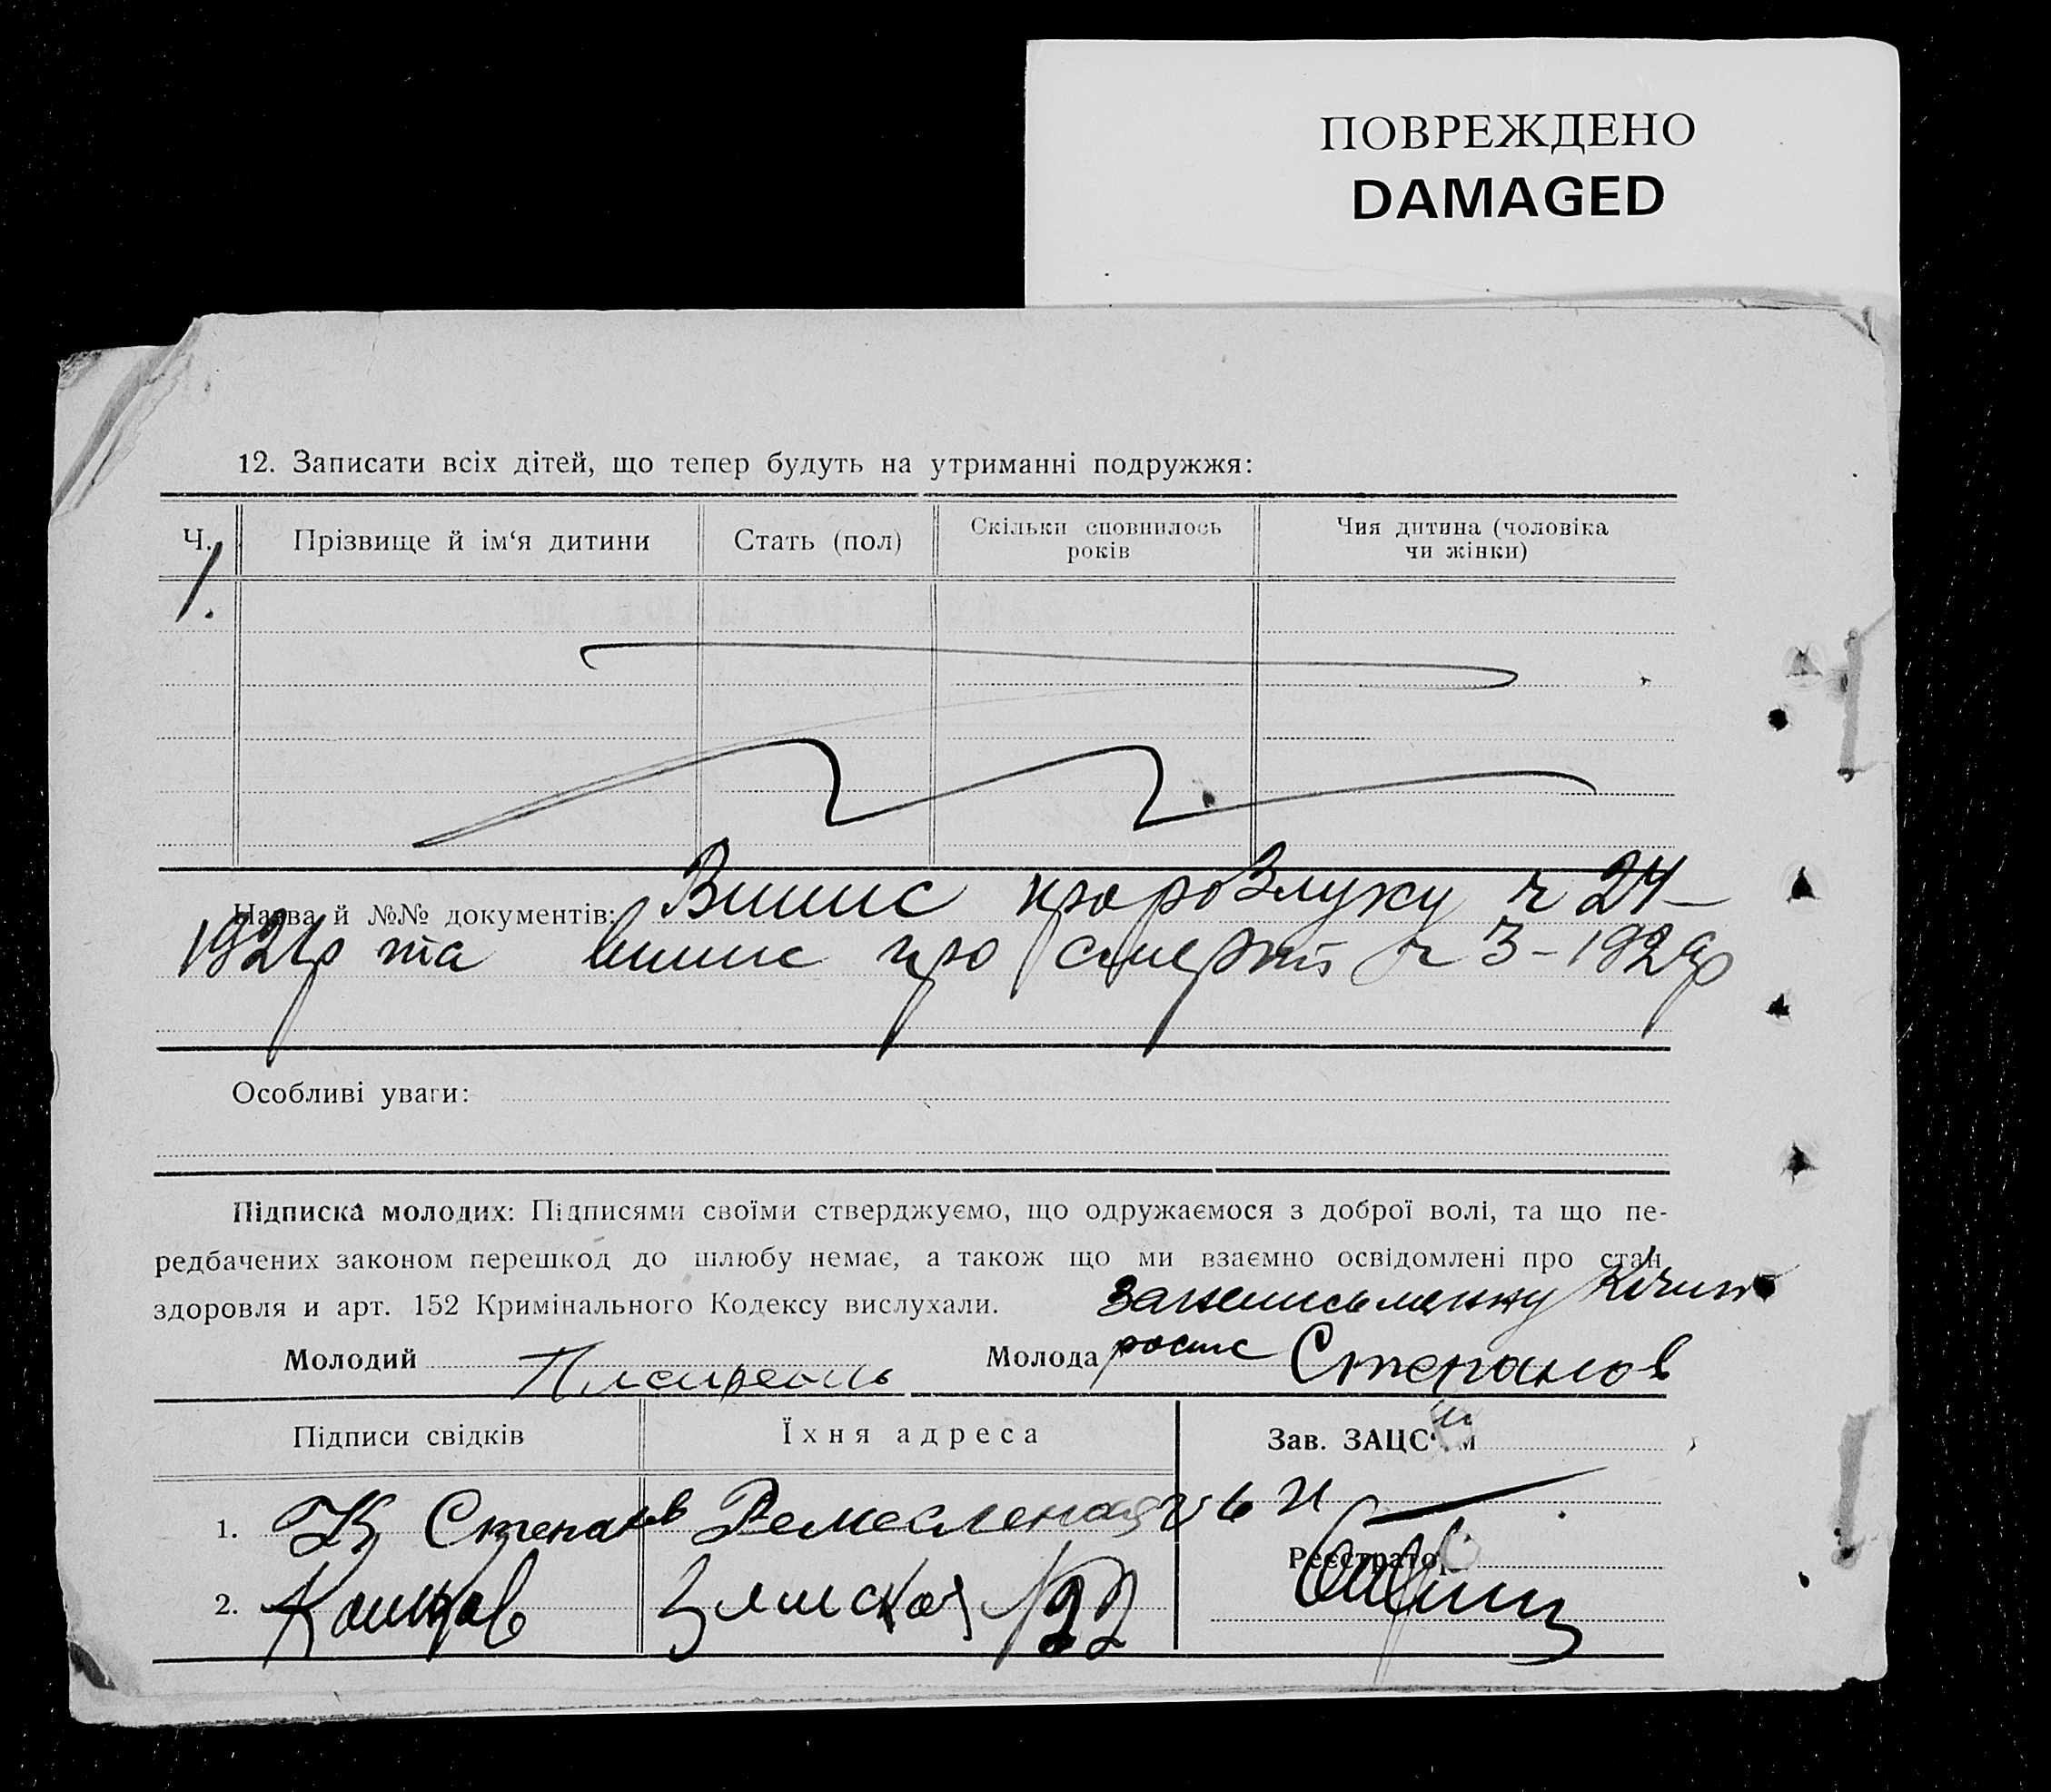 ПОВРЕЖДЕНО
DAMAGED
12. Записати всіх дітей, що тепер будуть на утриманні подружжя:
Ч. Прізвище й ім‘я дитини Стать (пол) Скільки сповнилось років Чия дитина (чоловіка чи жінки)
1.
Назва й №№ документів: Випис про розлуку ч 24-
192 р та випис про смерть ч 3-1929р
Особливі уваги:
Підписка молодих: Підписями своїми стверджуємо, що одружаємося з доброї волі, та що пе-
редбачених законом перешкод до шлюбу немає, а також що ми взаємно освідомлені про стан
здоровля и арт. 152 Кримінального Кодексу вислухали. за неписьменну
Молодий Молода роспис Степанов
Підписи свідків Їхня адреса Зав. ЗАЦС‘ом
1. К Степанов Ремесленая 21
2. 
Реєстратор